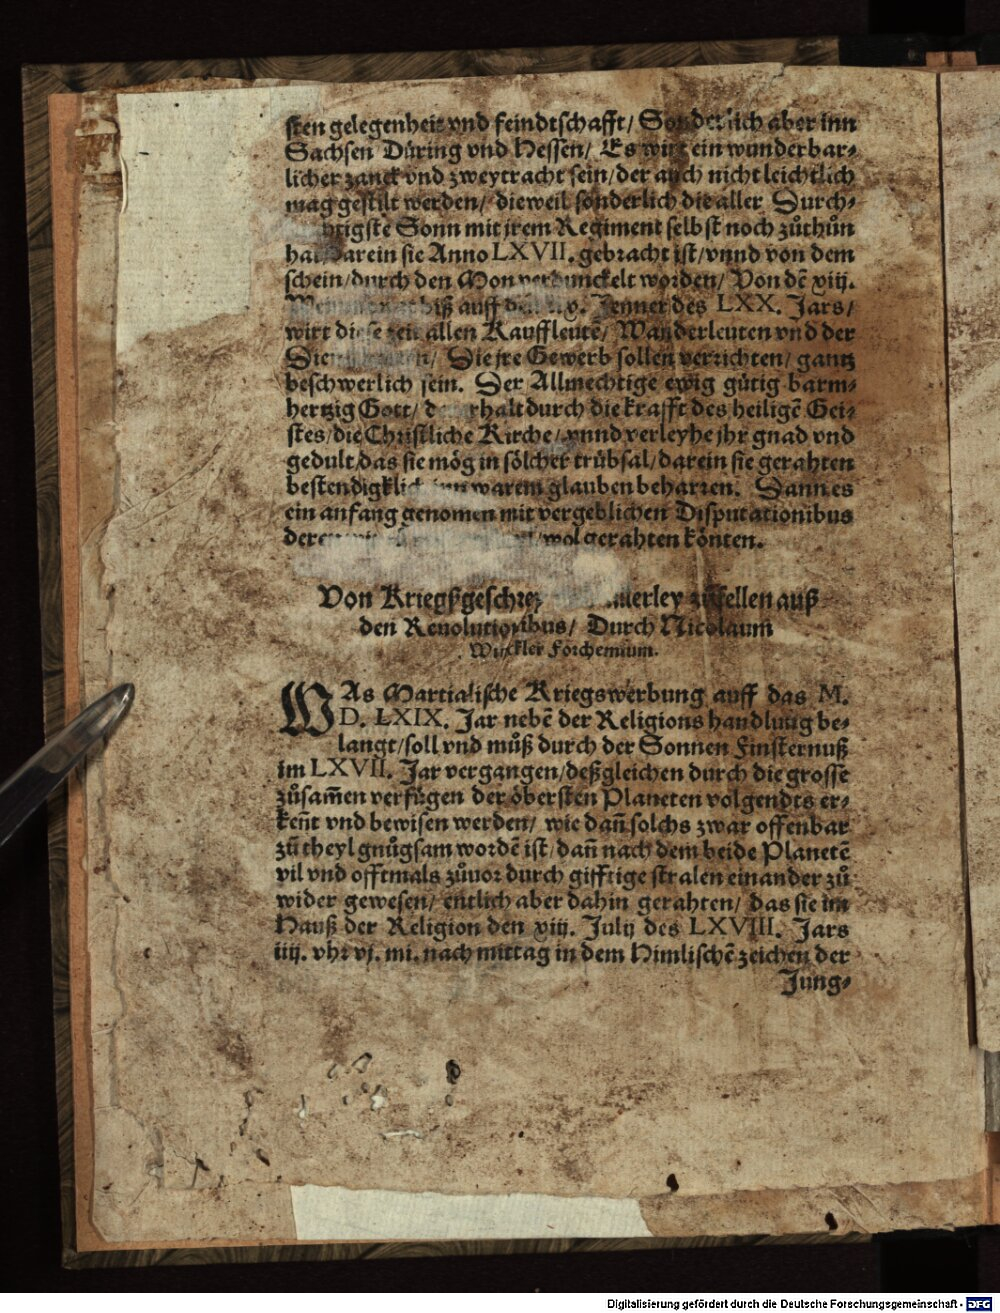 sten gelegenheit vnd feindtschafft/ Sonderlich aber inn
Sachsen Düring vnd Hessen/ Es wirt ein wunderbar⸗
licher zanck vnd zweytracht sein/ der auch nicht leichtlich
mag gestilt werden/ dieweil sonderlich die aller Durch⸗
Sonn mit jrem Regiment selbst noch zůthůn
hat/ darein sie Anno LXVII. gebracht ist/ vnnd von dem
schein/ durch den Mon verdunckelt worden/ Von dē xiij.
biß auff den Jenner des LXX. Jars/
wirt diese zeit allen Kauffleutē/ Wanderleuten vnd der
Die jre Gewerb sollen verrichten/ gantz
beschwerlich sein. Der Allmechtige ewig gütig barm⸗
hertzig Gott/ durch die krafft des heiligē Gei⸗
stes/ die Christliche Kirche/ vnnd verleyhe jhr gnad vnd
gedult das sie mög in sölcher trübsal/ darein sie gerahten
inn warem glauben beharren. Dann es
ein anfang genomen mit vergeblichen Disputationibus
wol gerahten könten.
Von zufellen auß
den Reuolutionibus/ Durch Nicolaum
Winckler Forchemium.
WAs Martialische Kriegswerbung auff das M.
D. LXIX. Jar nebē der Religions handlung be⸗
langt/ soll vnd můß durch der Sonnen Finsternuß
im LXVII. Jar vergangen/ deßgleichen durch die grosse
zůsam̄en verfügen der öbersten Planeten volgendts er⸗
ken̄t vnd bewisen werden/ wie dan̄ solchs zwar offenbar
zů theyl gnůgsam wordē ist/ dan̄ nach dem beide Planetē
vil vnd offtmals zůuor durch gifftige stralen einander zů
wider gewesen/ entlich aber dahin gerahten/ das sie im
Hauß der Religion den xiij. Julij des LXVIII. Jars
iiij. vhr vj. mi. nach mittag in dem Himlischē zeichen der
Jung⸗
Digitalisierung gefördert durch die Deutsche Forschungsgemeinschaft - DFG